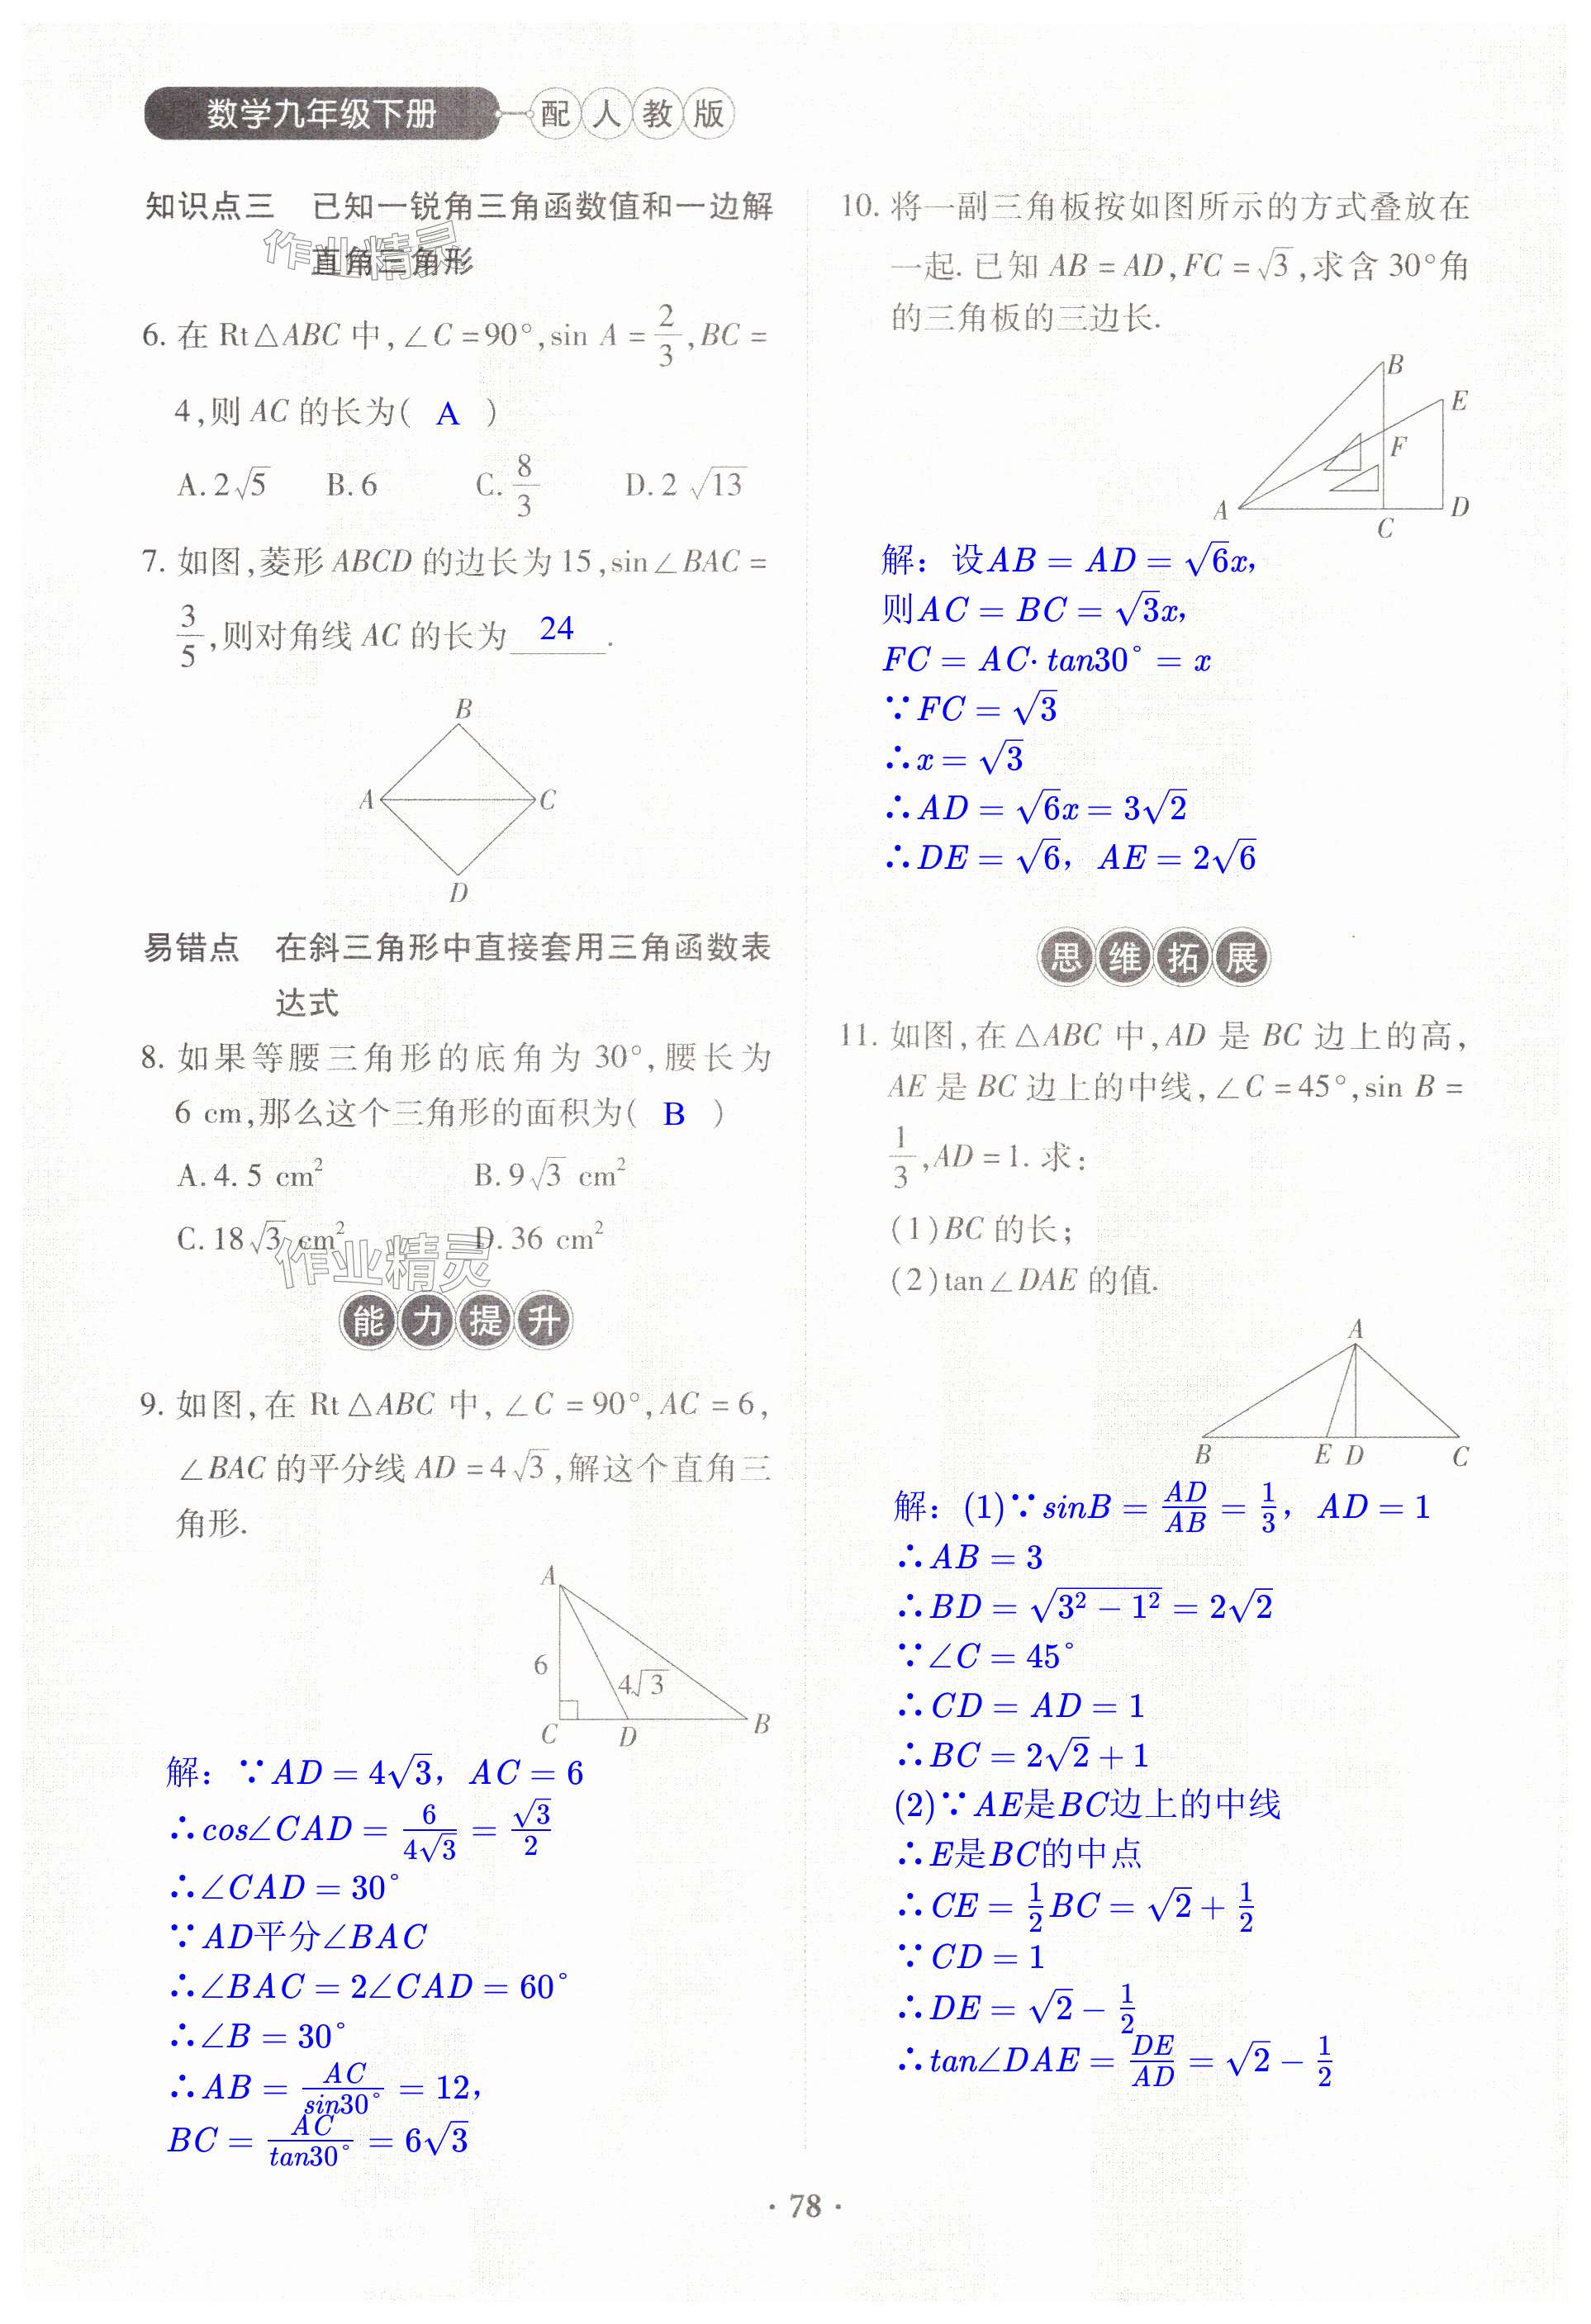 数学九年级下册 配人教版
知识点三 已知一锐角三角函数值和一边解
直角三角形
作业精灵
6. 在 Rt△ABC 中,∠C=90°,sin A=2/3,BC=
4,则 AC 的长为( A )
A. 2√5 B. 6 C. 8/3 D. 2√13
7. 如图,菱形 ABCD 的边长为 15,sin∠BAC=
3/5,则对角线 AC 的长为 24 .
B
A C
D
易错点 在斜三角形中直接套用三角函数表
达式
8. 如果等腰三角形的底角为 30°,腰长为
6 cm,那么这个三角形的面积为( B )
A. 4.5 cm² B. 9√3 cm²
C. 18√3 cm² D. 36 cm²
作业精灵
能力提升
9. 如图,在 Rt△ABC 中,∠C=90°,AC=6,
∠BAC 的平分线 AD=4√3,解这个直角三
角形.
A
6 4√3
C D B
解：∵AD=4√3，AC=6
∴cos∠CAD=6/(4√3)=√3/2
∴∠CAD=30°
∵AD平分∠BAC
∴∠BAC=2∠CAD=60°
∴∠B=30°
∴AB=AC/sin30°=12，
BC=AC/tan30°=6√3
10. 将一副三角板按如图所示的方式叠放在
一起. 已知 AB=AD,FC=√3,求含 30°角
的三角板的三边长.
B
E
F
A C D
解：设AB=AD=√6x，
则AC=BC=√3x，
FC=AC·tan30°=x
∵FC=√3
∴x=√3
∴AD=√6x=3√2
∴DE=√6，AE=2√6
思维拓展
11. 如图,在△ABC 中,AD 是 BC 边上的高,
AE 是 BC 边上的中线,∠C=45°,sin B=
1/3,AD=1. 求:
(1)BC 的长;
(2)tan∠DAE 的值.
A
B E D C
解：(1)∵sinB=AD/AB=1/3，AD=1
∴AB=3
∴BD=√(3²−1²)=2√2
∵∠C=45°
∴CD=AD=1
∴BC=2√2+1
(2)∵AE是BC边上的中线
∴E是BC的中点
∴CE=1/2BC=√2+1/2
∵CD=1
∴DE=√2−1/2
∴tan∠DAE=DE/AD=√2−1/2
· 78 ·